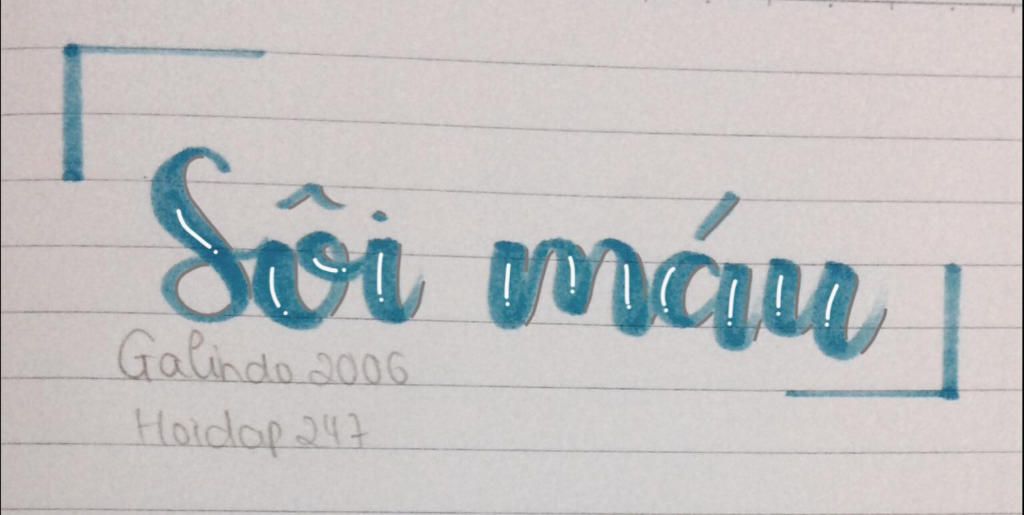 Sôi máu
Galindo 2006
Hoidap 247